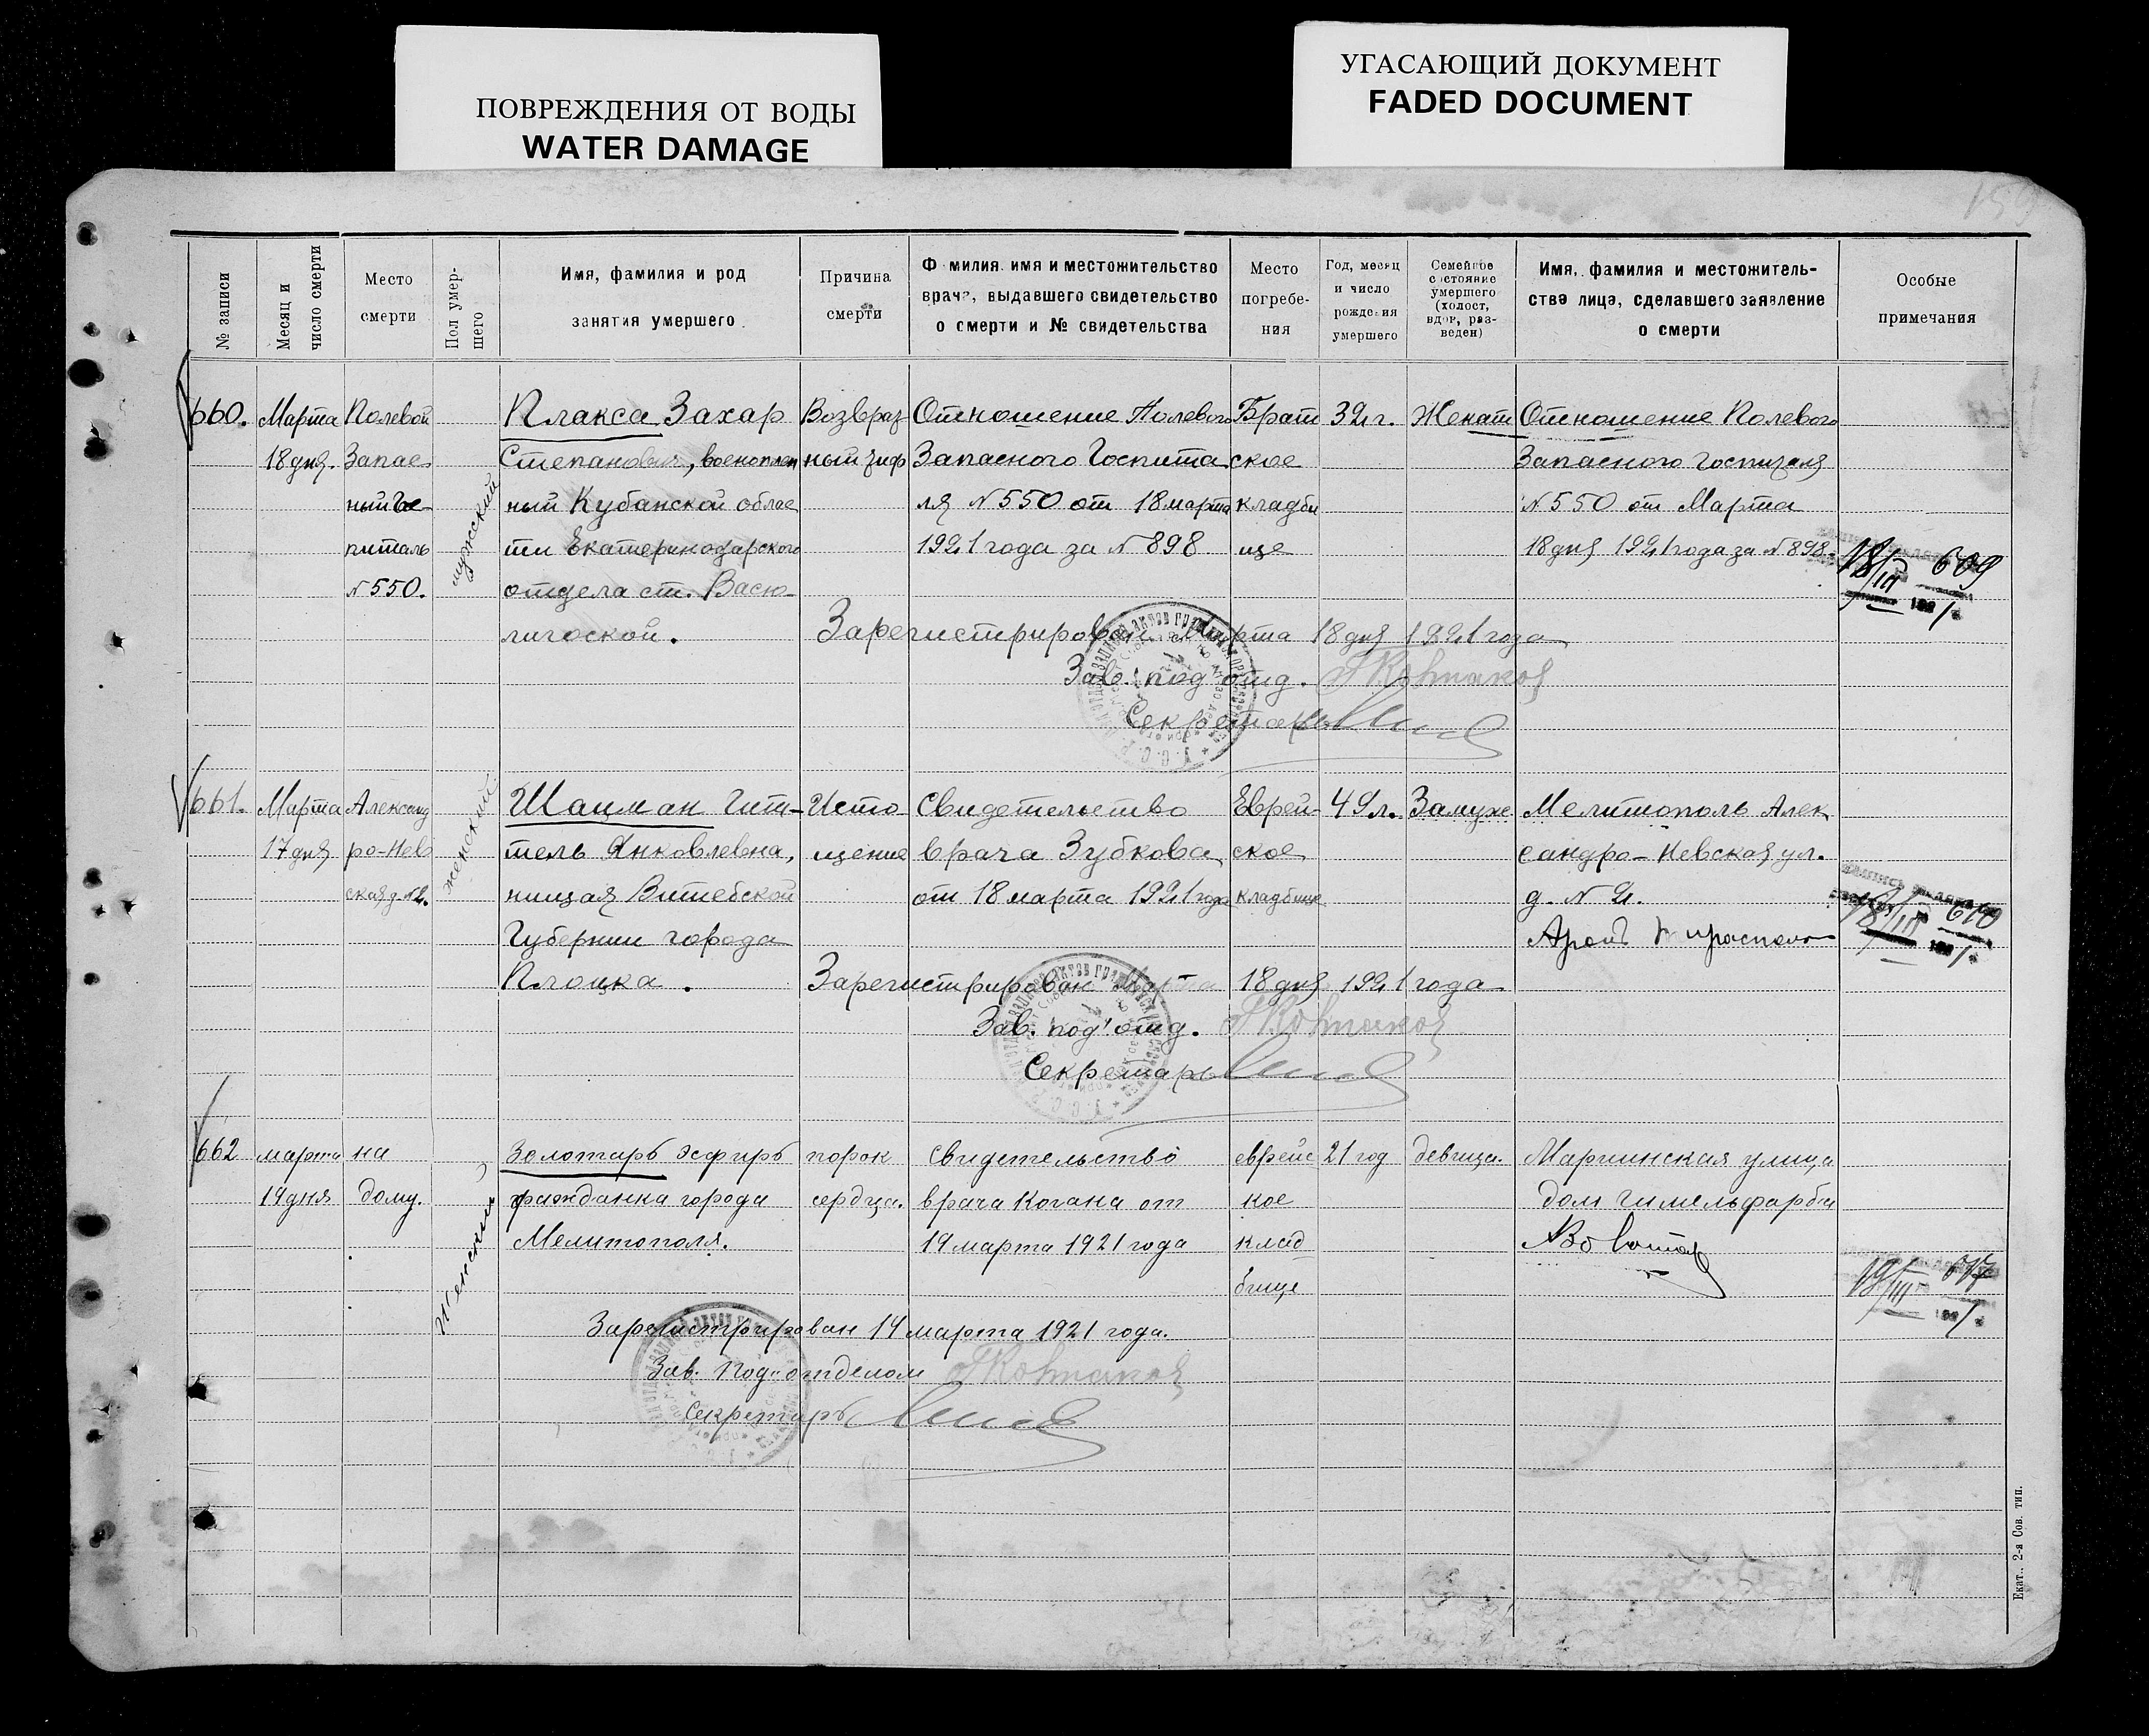 ПОВРЕЖДЕНИЯ ОТ ВОДЫ
WATER DAMAGE
УГАСАЮЩИЙ ДОКУМЕНТ
FADED DOCUMENT
№ записи
Месяц и
число смерти
Место
смерти
Пол умер-
шего
Имя, фамилия и род
занятия умершего
Причина
смерти
Ф милия имя и местожительство
врача, выдавшего свидетельство
о смерти и № свидетельства
Место
погребе-
ния
Год, месяц
и число
рождения
умершего
Семейное
состояние
умершего
(холост,
вдов, раз-
веден)
Имя, фамилия и местожитель-
ство лица, сделавшего заявление
о смерти
Особые
примечания
660.
Марта
18 дня.
Полевой
Запас
ный Го
питаль
№ 550.
мужской
Плакса Захар
Степанович, военоплен
ный Кубанской облас
ти Екатеринодарского
отдела ст. Васю-
Возвраз
ный тиф
Отношение Полевого
Запасного Госпита
ля № 550 от 18 марта
1921 года за № 898
Брат
ское
кладби
ще
32 г.
Женат
Отношение Полевого
Запасного Госпиталя
№ 550 от Марта
18 дня 1921 года за № 898.
18/III 609
192 1 г.
Зарегистрирован Марта 18 дня 1921 года
Зав. под'отд.
Секретарь
661.
Марта
17 дня
Александ
ро-Нев
ская д № 2.
женский
Шацман Гит-
тель Янковлевна,
нищая Витебской
Губернии города
Плоцка.
Исто
щение
Свидетельство
врача Зубкова
от 18 марта 1921 года
Еврей-
ское
кладбище
49 л.
Замуж
Мелитополь Алек
сандро-Невская ул.
д. № 2.
Аронъ
18/III 610
192 1 г.
Зарегистрирован Марта 18 дня 1921 года
Зав. под'отд.
Секретарь
662
марта
19 дня
на
дому.
Женский
Золотарь Эсфирь
гражданка города
Мелитополя.
порок
сердца.
свидетельство
врача Когана от
19 марта 1921 года
еврейс
кое
клад
бище
21 год
девица.
Мариинская улица
дом Гимельфарба
19/III 617
192 1 г.
Зарегистрирован 19 марта 1921 года.
Зав. Под'отделом
Секретарь
Екат.. 2-я Сов. тип.